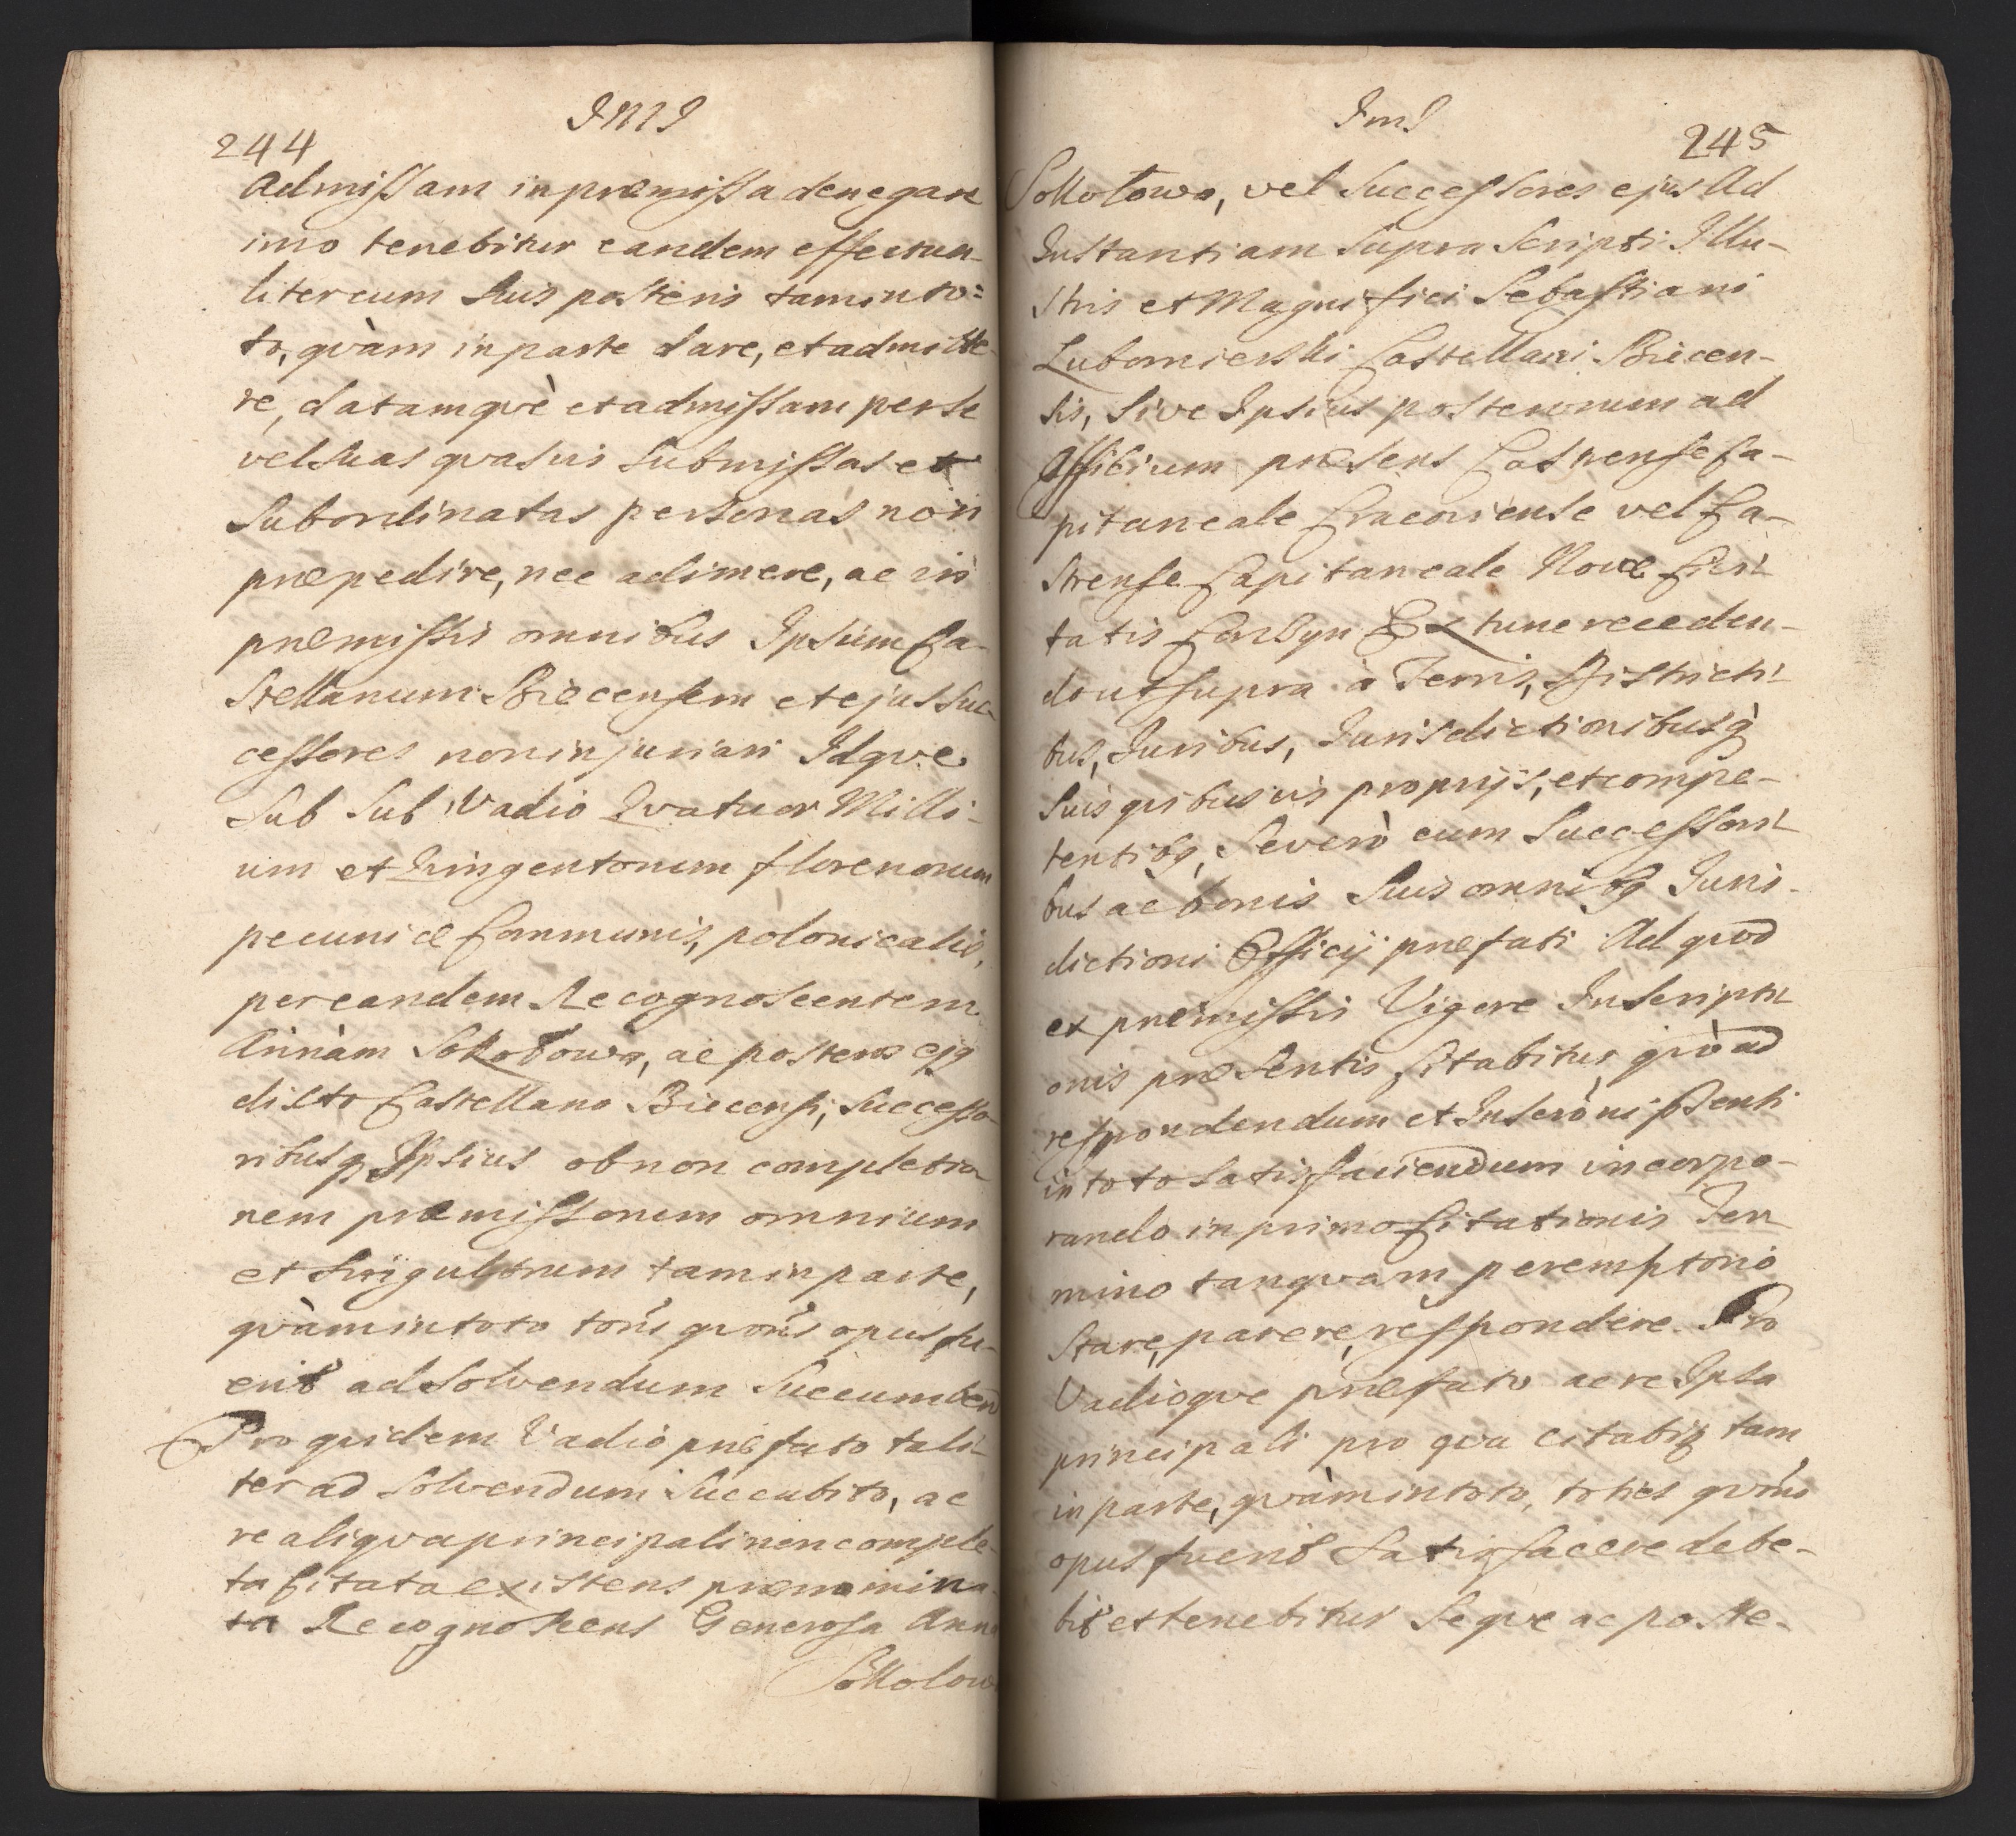 244
JMJ
Admissam in præmissa denegare
imo tenebitur eandem effectua-
liter cum suis posteris tam in to=
to, qvàm in parte dare, et admitte-
re, datamqvè et admissam per se
vel suas qvasvis submissas et
Subordinatas personas non
præpedire, nec adimere, ac in
præmissis omnibus Ipsum Ca-
stellanum Biecensem et ejus suc-
cessores non injuriari Idqve
Sub Sub Vadio Qvatuor Milli-
um et Qvingentorum florenorum
pecuniæ Communis, polonicalis,
per eandem Recognoscentem
Annàm Sokołowa, ac posteros ejq
dicto Castellano Biecensi, Successo-
ribusq Ipsius ob non completio-
nem præmissorum omnium
et Singulorum tam in parte,
qvàm in toto toñs qvoñs opus fu-
erit ad Solvendum Succumben
Pro qvidem Vadio præfato tali-
ter ad Solvendum Succubito, ac
re aliqva principali non comple-
ta Citata existens prænomina-
ta Recognoscens Generosa Anna
Sokolow
JmJ
245
Sokołowa, vel Successores ejus Ad
Instantiam Supra Scripti Illu-
stris et Magnifici Sebastiani
Lubomierski Castellani Biecen-
sis, Sive Ipsius posterorum ad
Officium præsens Castrense Ca-
pitaneale Cracoviense vel Ca-
strense Capitaneale Novæ Civi-
tatis Corbyn Ex tunc receden-
do ut supra à Terris, Districti-
bus, Juribus, Jurisdictionibusq̀
Suis qvibusvis proprijs, et compe-
tentibq, Se verò cum Successori-
bus ac bonis Suis omnibq Juris-
dictioni Officij præfati Ad qvod
ex præmissis Vigore Inscripti-
onis præsentis Citabitur qvò ad
respondendum et Inscrõni pſenti
in toto Satisfaciendum incorpo-
rando in primo Citationis Ter-
mino tanqvam peremptorio
Stare, parere, respondere. Pro
Vadioqve præfato ac re Ipsa
principali pro qva citabiq tam
in parte, qvàm in toto, toties qvõns
opus fuerit Satisfacere debe-
bit et tenebitur Seqve ac poste-